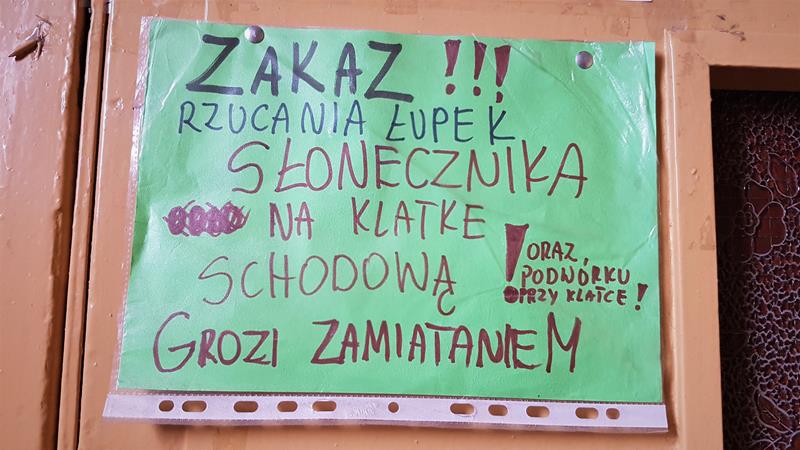 ZAKAZ !!!
RZUCANIA ŁUPEK
SŁONECZNIKA
NA KLATKE
SCHODOWĄ
! ORAZ,
PODWÓRKU
PRZY KLATCE!
GROZI ZAMIATANIEM